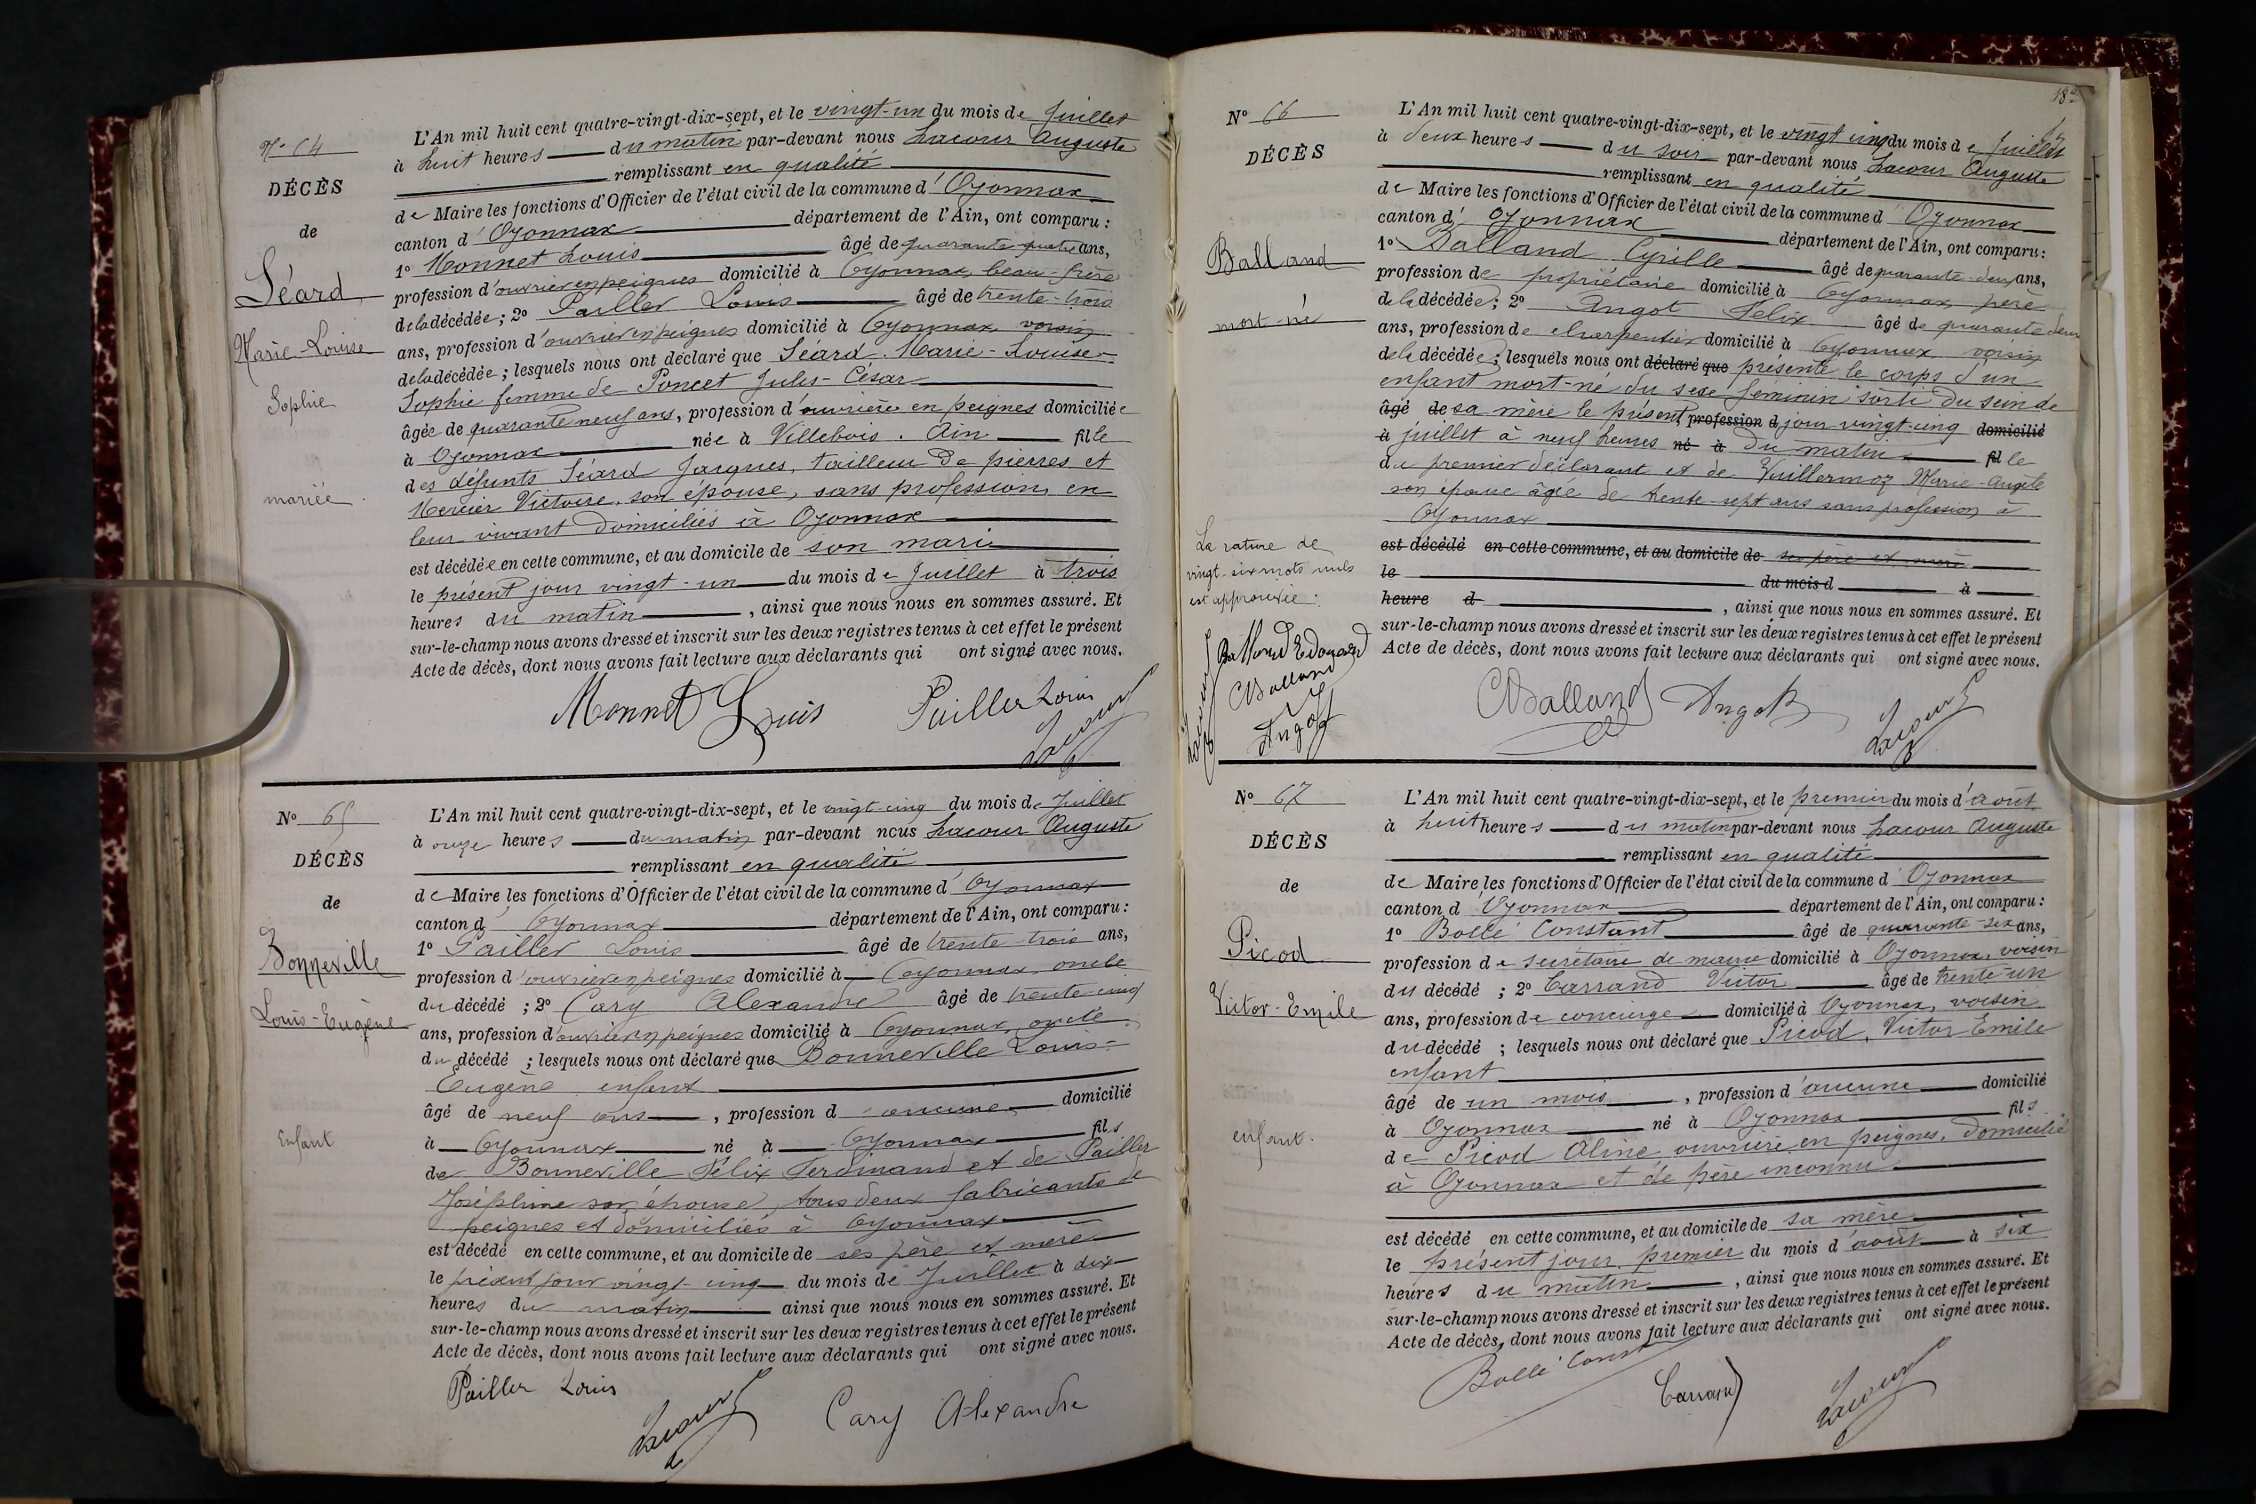 N° 64
DÉCÈS
de
Séard
Marie-Louise
Sophie
mariée.
L'An mil huit cent quatre-vingt-dix-sept, et le vingt-un du mois de Juillet
à huit heures du matin par-devant nous Lacour Auguste
remplissant en qualité
de Maire les fonctions d'Officier de l'état civil de la commune d'Oyonnax
canton d'Oyonnax département de l'Ain, ont comparu :
1° Monnet Louis âgé de quarante quatre ans,
profession d'ouvrier en peignes domicilié à Oyonnax, beau-frère
de la décédée ; 2° Pailler Louis âgé de trente-trois
ans, profession d'ouvrier en peignes domicilié à Oyonnax voisin
de la décédée ; lesquels nous ont déclaré que Séard Marie-Louise-
Sophie femme de Poncet Jules-César
âgée de quarante neuf ans, profession d'ouvrière en peignes domiciliée
à Oyonnax née à Villebois. Ain fille
des défunts Séard Jacques, tailleur de pierres et
Mercier Victoire, son épouse, sans profession, en
leur vivant domiciliés à Oyonnax
est décédée en cette commune, et au domicile de son mari
le présent jour vingt-un du mois de Juillet à trois
heures du matin, ainsi que nous nous en sommes assuré. Et
sur-le-champ nous avons dressé et inscrit sur les deux registres tenus à cet effet le présent
Acte de décès, dont nous avons fait lecture aux déclarants qui ont signé avec nous.
Monnet Louis Pailler Louis
Lacour
N° 65
DÉCÈS
de
Bonneville
Louis-Eugène
Enfant
L'An mil huit cent quatre-vingt-dix-sept, et le vingt-cinq du mois de Juillet
à onze heures du matin par-devant nous Lacour Auguste
remplissant en qualité
de Maire les fonctions d'Officier de l'état civil de la commune d'Oyonnax
canton d'Oyonnax département de l'Ain, ont comparu :
1° Pailler Louis âgé de trente-trois ans,
profession d'ouvrier en peignes domicilié à Oyonnax oncle
du décédé ; 2° Cary Alexandre âgé de trente-cinq
ans, profession d'ouvrier en peignes domicilié à Oyonnax, oncle
du décédé ; lesquels nous ont déclaré que Bonneville Louis-
Eugène enfant
âgé de neuf ans, profession d'aucune domicilié
à Oyonnax né à Oyonnax fils
de Bonneville Félix Ferdinand et de Pailler
Joséphine son épouse, tous deux fabricants de
peignes et domiciliés à Oyonnax
est décédé en cette commune, et au domicile de ses père et mère
le présent jour vingt-cinq du mois de Juillet à dix
heures du matin ainsi que nous nous en sommes assuré. Et
sur-le-champ nous avons dressé et inscrit sur les deux registres tenus à cet effet le présent
Acte de décès, dont nous avons fait lecture aux déclarants qui ont signé avec nous.
Pailler Louis
Lacour Cary Alexandre
N° 66
DÉCÈS
Balland
mort-né
La rature de
vingt-six mots nuls
est approuvée :
Balland Edouard
CBalland
Angot
Lacour
L'An mil huit cent quatre-vingt-dix-sept, et le vingt cinq du mois de Juillet
à deux heures du soir par-devant nous Lacour Auguste
remplissant en qualité
de Maire les fonctions d'Officier de l'état civil de la commune d'Oyonnax
canton d'Oyonnax département de l'Ain, ont comparu :
1° Balland Cyrille âgé de quarante-deux ans,
profession de propriétaire domicilié à Oyonnax père
de la décédée ; 2° Angot Félix âgé de quarante deux
ans, profession de charpentier domicilié à Oyonnax voisin
de la décédée ; lesquels nous ont déclaré que présenté le corps d'un
enfant mort-né du sexe féminin sorti du sein de
âgé de sa mère le présent, profession d jour vingt-cinq domicilié
à juillet à neuf heures né à du matin fille
du premier déclarant et de Vuillermoz Marie-Angèle
son épouse âgée de trente-sept ans sans profession à
Oyonnax
est décédé en cette commune, et au domicile de ses père et mère
le du mois d à
heure d, ainsi que nous nous en sommes assuré. Et
sur-le-champ nous avons dressé et inscrit sur les deux registres tenus à cet effet le présent
Acte de décès, dont nous avons fait lecture aux déclarants qui ont signé avec nous.
CBalland Angot
Lacour
N° 67
DÉCÈS
de
Picod
Victor-Emile
enfant.
L'An mil huit cent quatre-vingt-dix-sept, et le premier du mois d'août
à huit heures du matin par-devant nous Lacour Auguste
remplissant en qualité
de Maire les fonctions d'Officier de l'état civil de la commune d'Oyonnax
canton d'Oyonnax département de l'Ain, ont comparu :
1° Bollé Constant âgé de quarante-six ans,
profession de secrétaire de mairie domicilié à Oyonnax, voisin
du décédé ; 2° Carrand Victor âgé de trente-un
ans, profession de concierge domicilié à Oyonnax, voisin
du décédé ; lesquels nous ont déclaré que Picod, Victor Emile
enfant
âgé de un mois, profession d'aucune domicilié
à Oyonnax né à Oyonnax fils
de Picod Aline ouvrière en peignes, domiciliée
à Oyonnax et de père inconnu
est décédé en cette commune, et au domicile de sa mère
le présent jour premier du mois d'août à six
heures du matin, ainsi que nous nous en sommes assuré. Et
sur-le-champ nous avons dressé et inscrit sur les deux registres tenus à cet effet le présent
Acte de décès, dont nous avons fait lecture aux déclarants qui ont signé avec nous.
Bollé Const
Carrand
Lacour